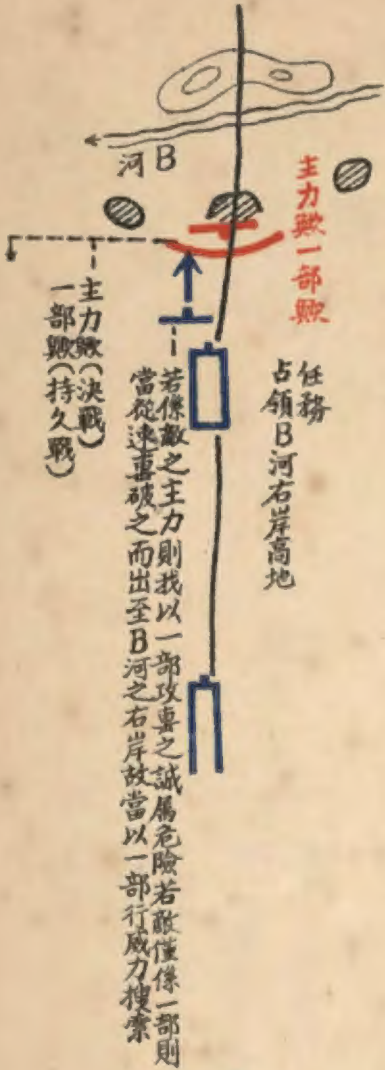 河B
主力歟一部歟
任務
占領B河右岸高地
若係敵之主力則我以一部攻擊之誠屬危險若敵僅係一部則
當從速擊破之而出至B河之右岸故當以一部行威力搜索
主力歟(決戰)
一部歟(持久戰)